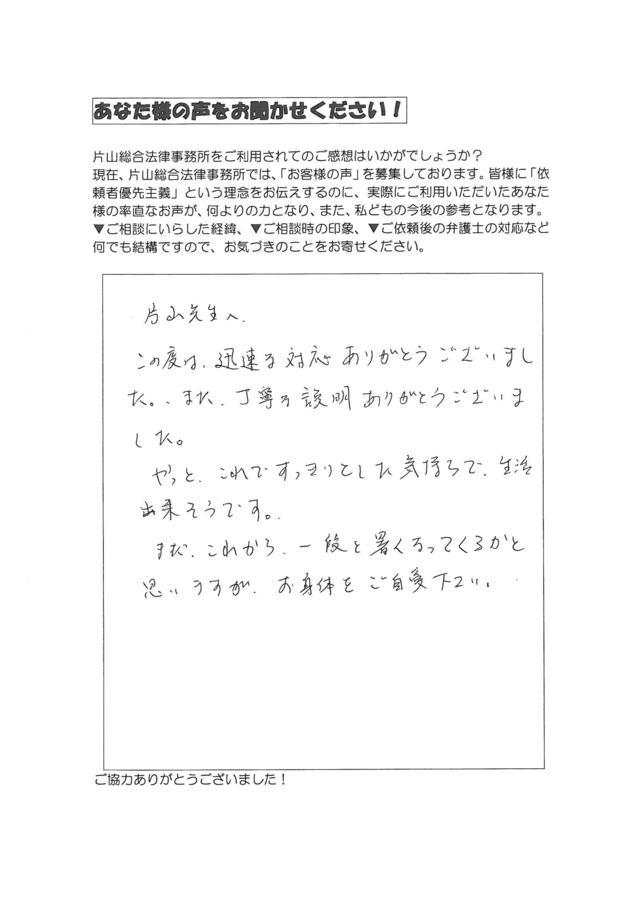 あなた様の声をお聞かせください！
片山総合法律事務所をご利用されてのご感想はいかがでしょうか？
現在、片山総合法律事務所では、「お客様の声」を募集しております。皆様に「依
頼者優先主義」という理念をお伝えするのに、実際にご利用いただいたあなた
様の率直なお声が、何よりの力となり、また、私どもの今後の参考となります。
▼ご相談にいらした経緯、▼ご相談時の印象、▼ご依頼後の弁護士の対応など
何でも結構ですので、お気づきのことをお寄せください。
片山先生へ.
この度は、迅速な対応 ありがとうございまし
た。、また、丁寧な説明ありがとうございま
した。
やっと、これですっきりとした気持ちで、生活
出来そうです。
まだ、これから、一段と暑くなってくるかと
思いますが、お身体をご自愛下さい。
ご協力ありがとうございました！